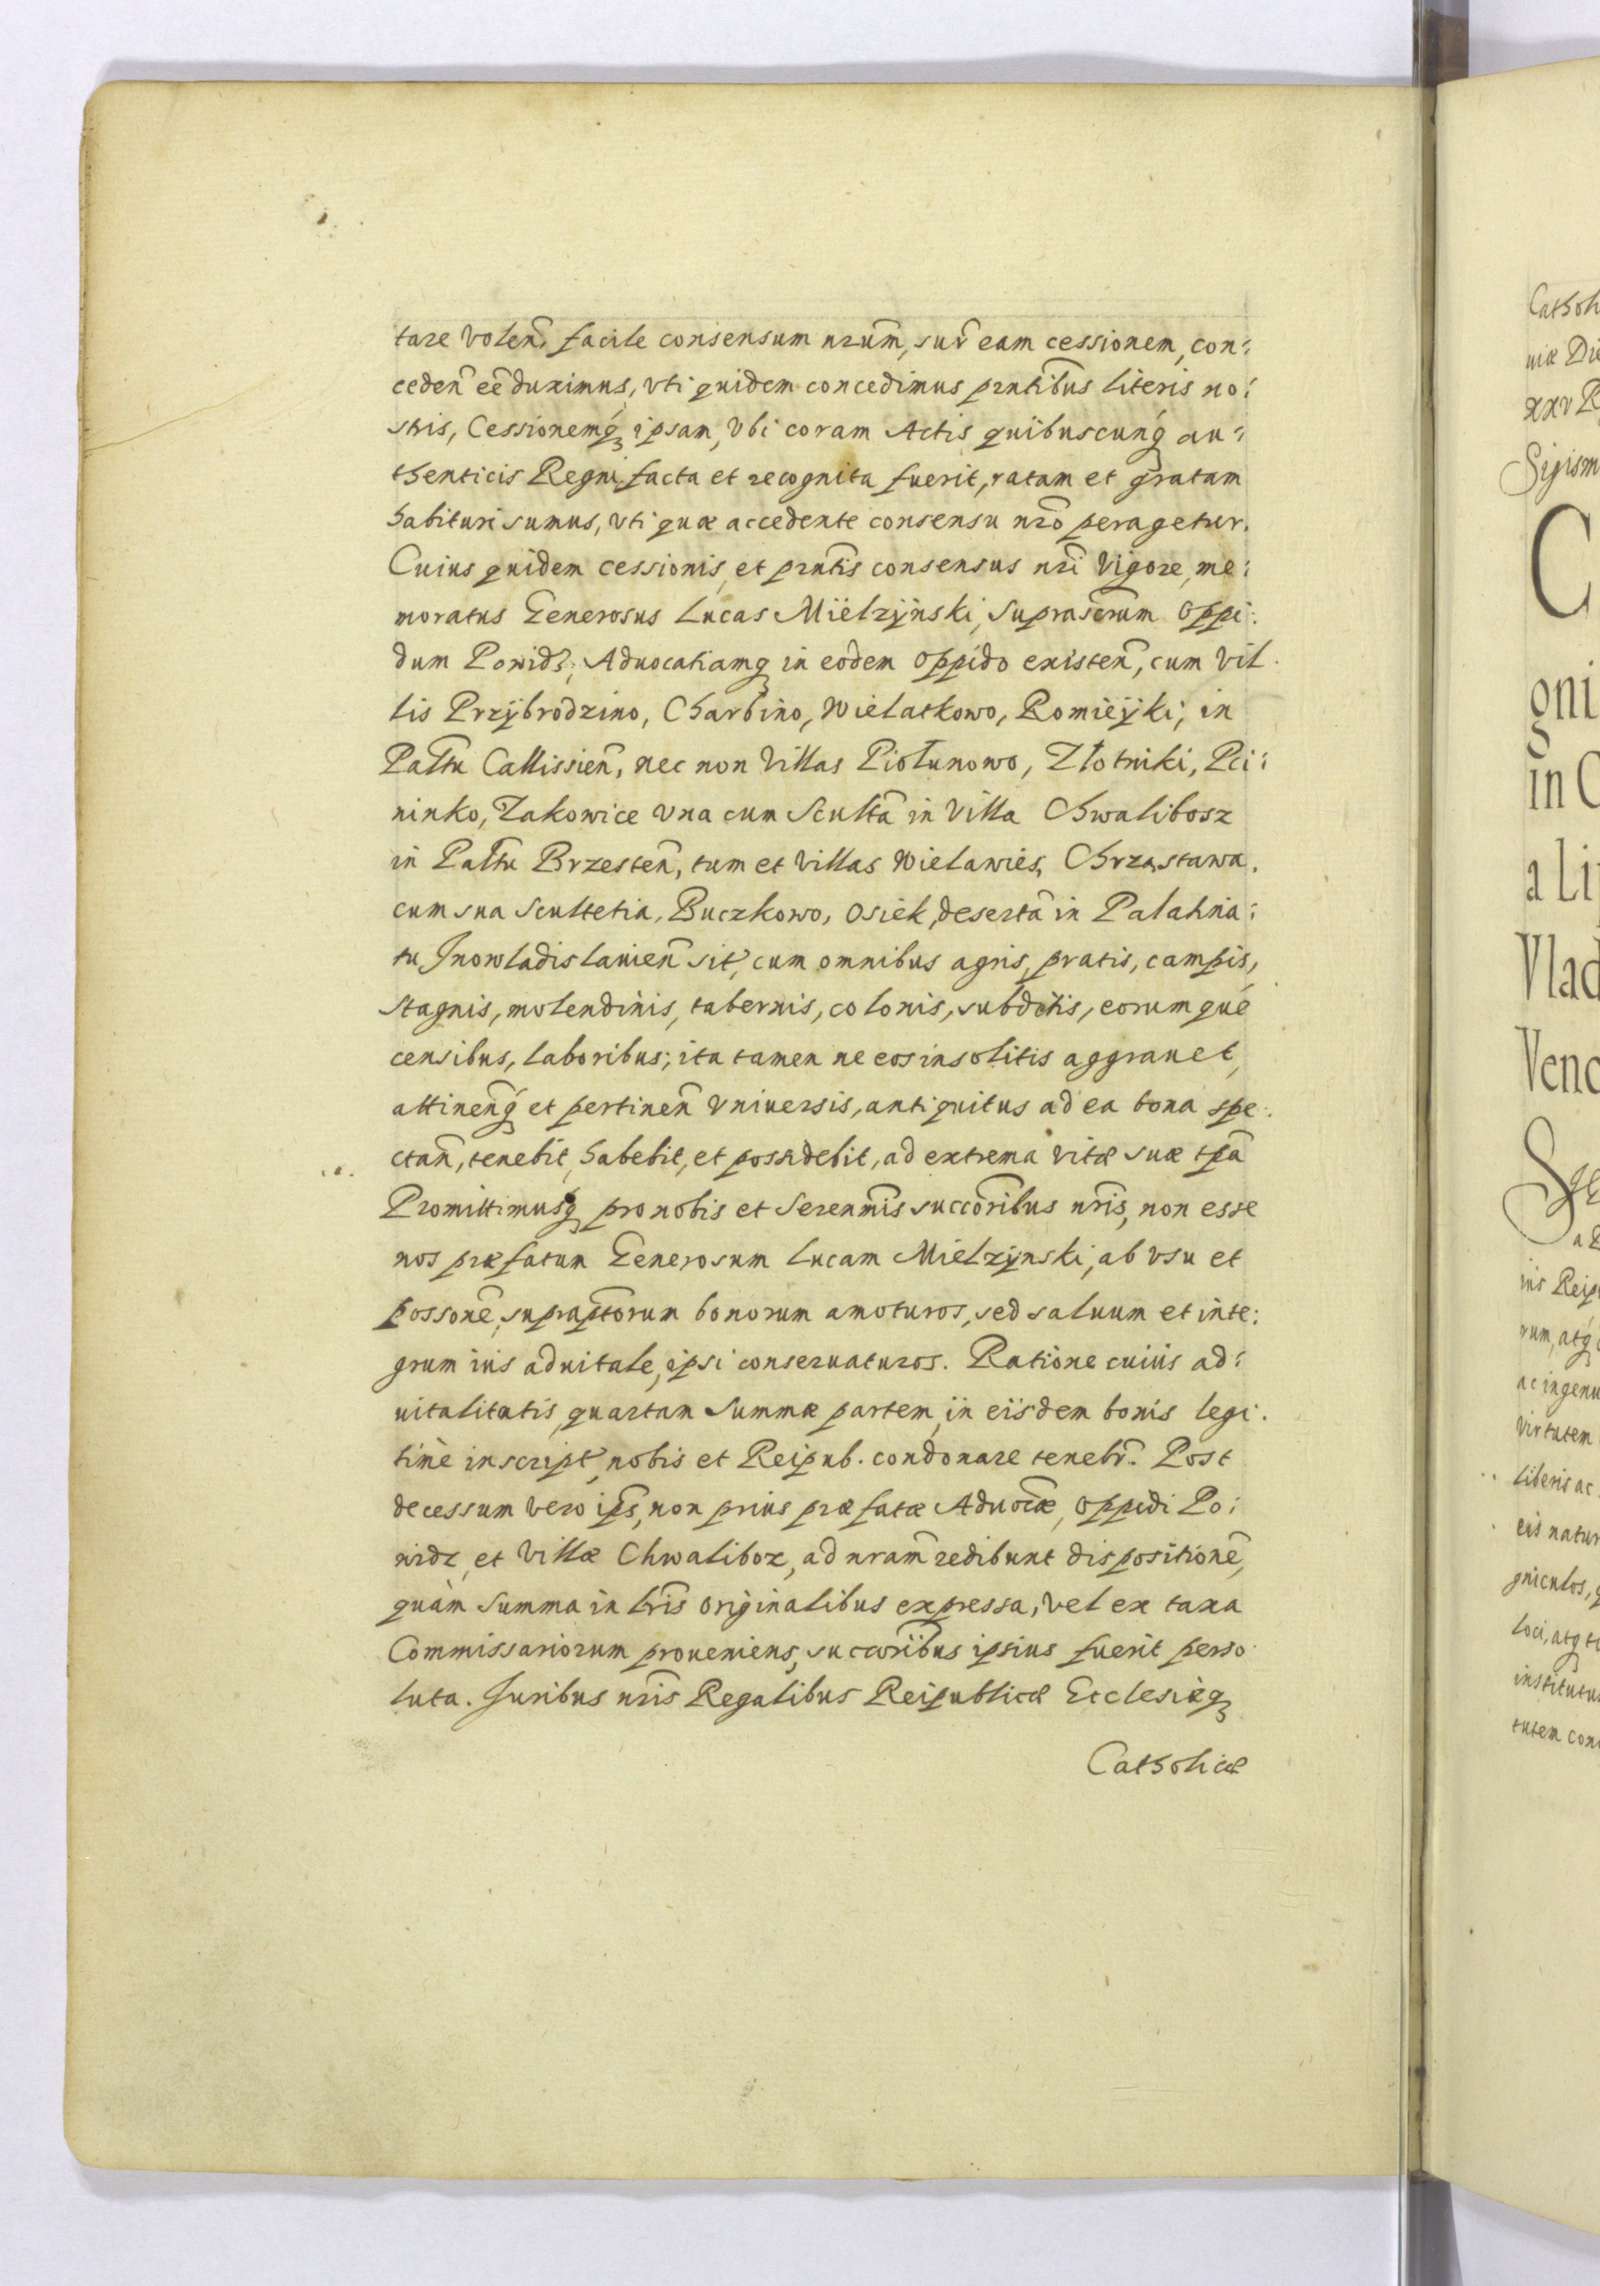 tare volen̄, facile consensum nrūm, sup̄ eam cessionem, con:
ceden̄ eē duximus, vti quidem concedimus prntib̄us literis no:
stris, Cessionemq́; ipsam, Vbi coram Actis quibuscunq́; au:
thenticis Regni facta et recognita fuerit, ratam et gratam
habituri sumus, vti quæ accedente consensu nrō peragetur.
Cuius quidem cessionis, et prnt̄is consensus nrī Vigore, me:
moratus Generosus Lucas Mielzÿnski, suprascr̄um Oppi:
dum Powidz, Aduocatiamq; in eodem Oppido existen̄, cum Vil
lis Przÿbrodzino, Charbino, Wielatkowo, Romieÿki, in
Palt̄u Callissien̄, nec non Villas Piołunowo, Złotniki, Pci:
ninko, Zakowice Vna cum Scult̄a in Villa Chwalibosz
in Palt̄u Brzesten̄, tum et Villas Wielawies, Chrząstawa,
cum sua Scultetia, Buczkowo, Osiek, desertā in Palatina:
tu Jnowladislauien̄ sit̄, cum omnibus agris, pratis, campis,
stagnis, molendinis, tabernis, colonis, subditis, eorumqué
censibus, laboribus; ita tamen ne eos insolitis aggrauet,
attinen̄q́; et pertinen̄ Vniuersis, antiquitus ad ea bona spe:
ctan̄, tenebit, habebit, et possidebit, ad extrema Vitæ suæ tp̄a
Promittimusq́; pro nobis et Serenmīs succor̄ibus nr̄is, non esse
nos præfatum Generosum Lucam Mielzÿnski, ab Vsu et
possonē, suprapt̄orum bonorum amoturos, sed saluum et inte:
grum ius aduitale, ipsi conseruaturos. Ratione cuius ad:
uitalitatis, quartam Summæ partem, in eisdem bonis legi:
timè inscript̄, nobis et Reipub. condonare teneb̄r. Post
decessum vero ips̄, non prius præfatæ Aduocāæ, Oppidi Po:
widz, et Villæ Chwaliboz, ad nram̄ redibunt dispositionē,
quàm Summa in lr̄is originalibus expressa, Vel ex taxa
Commissariorum proueniens, succor̄ibus ipsius fuerit perso
luta. Juribus nr̄is Regalibus Reipublicæ Ecclesiæq;
Catholicæ